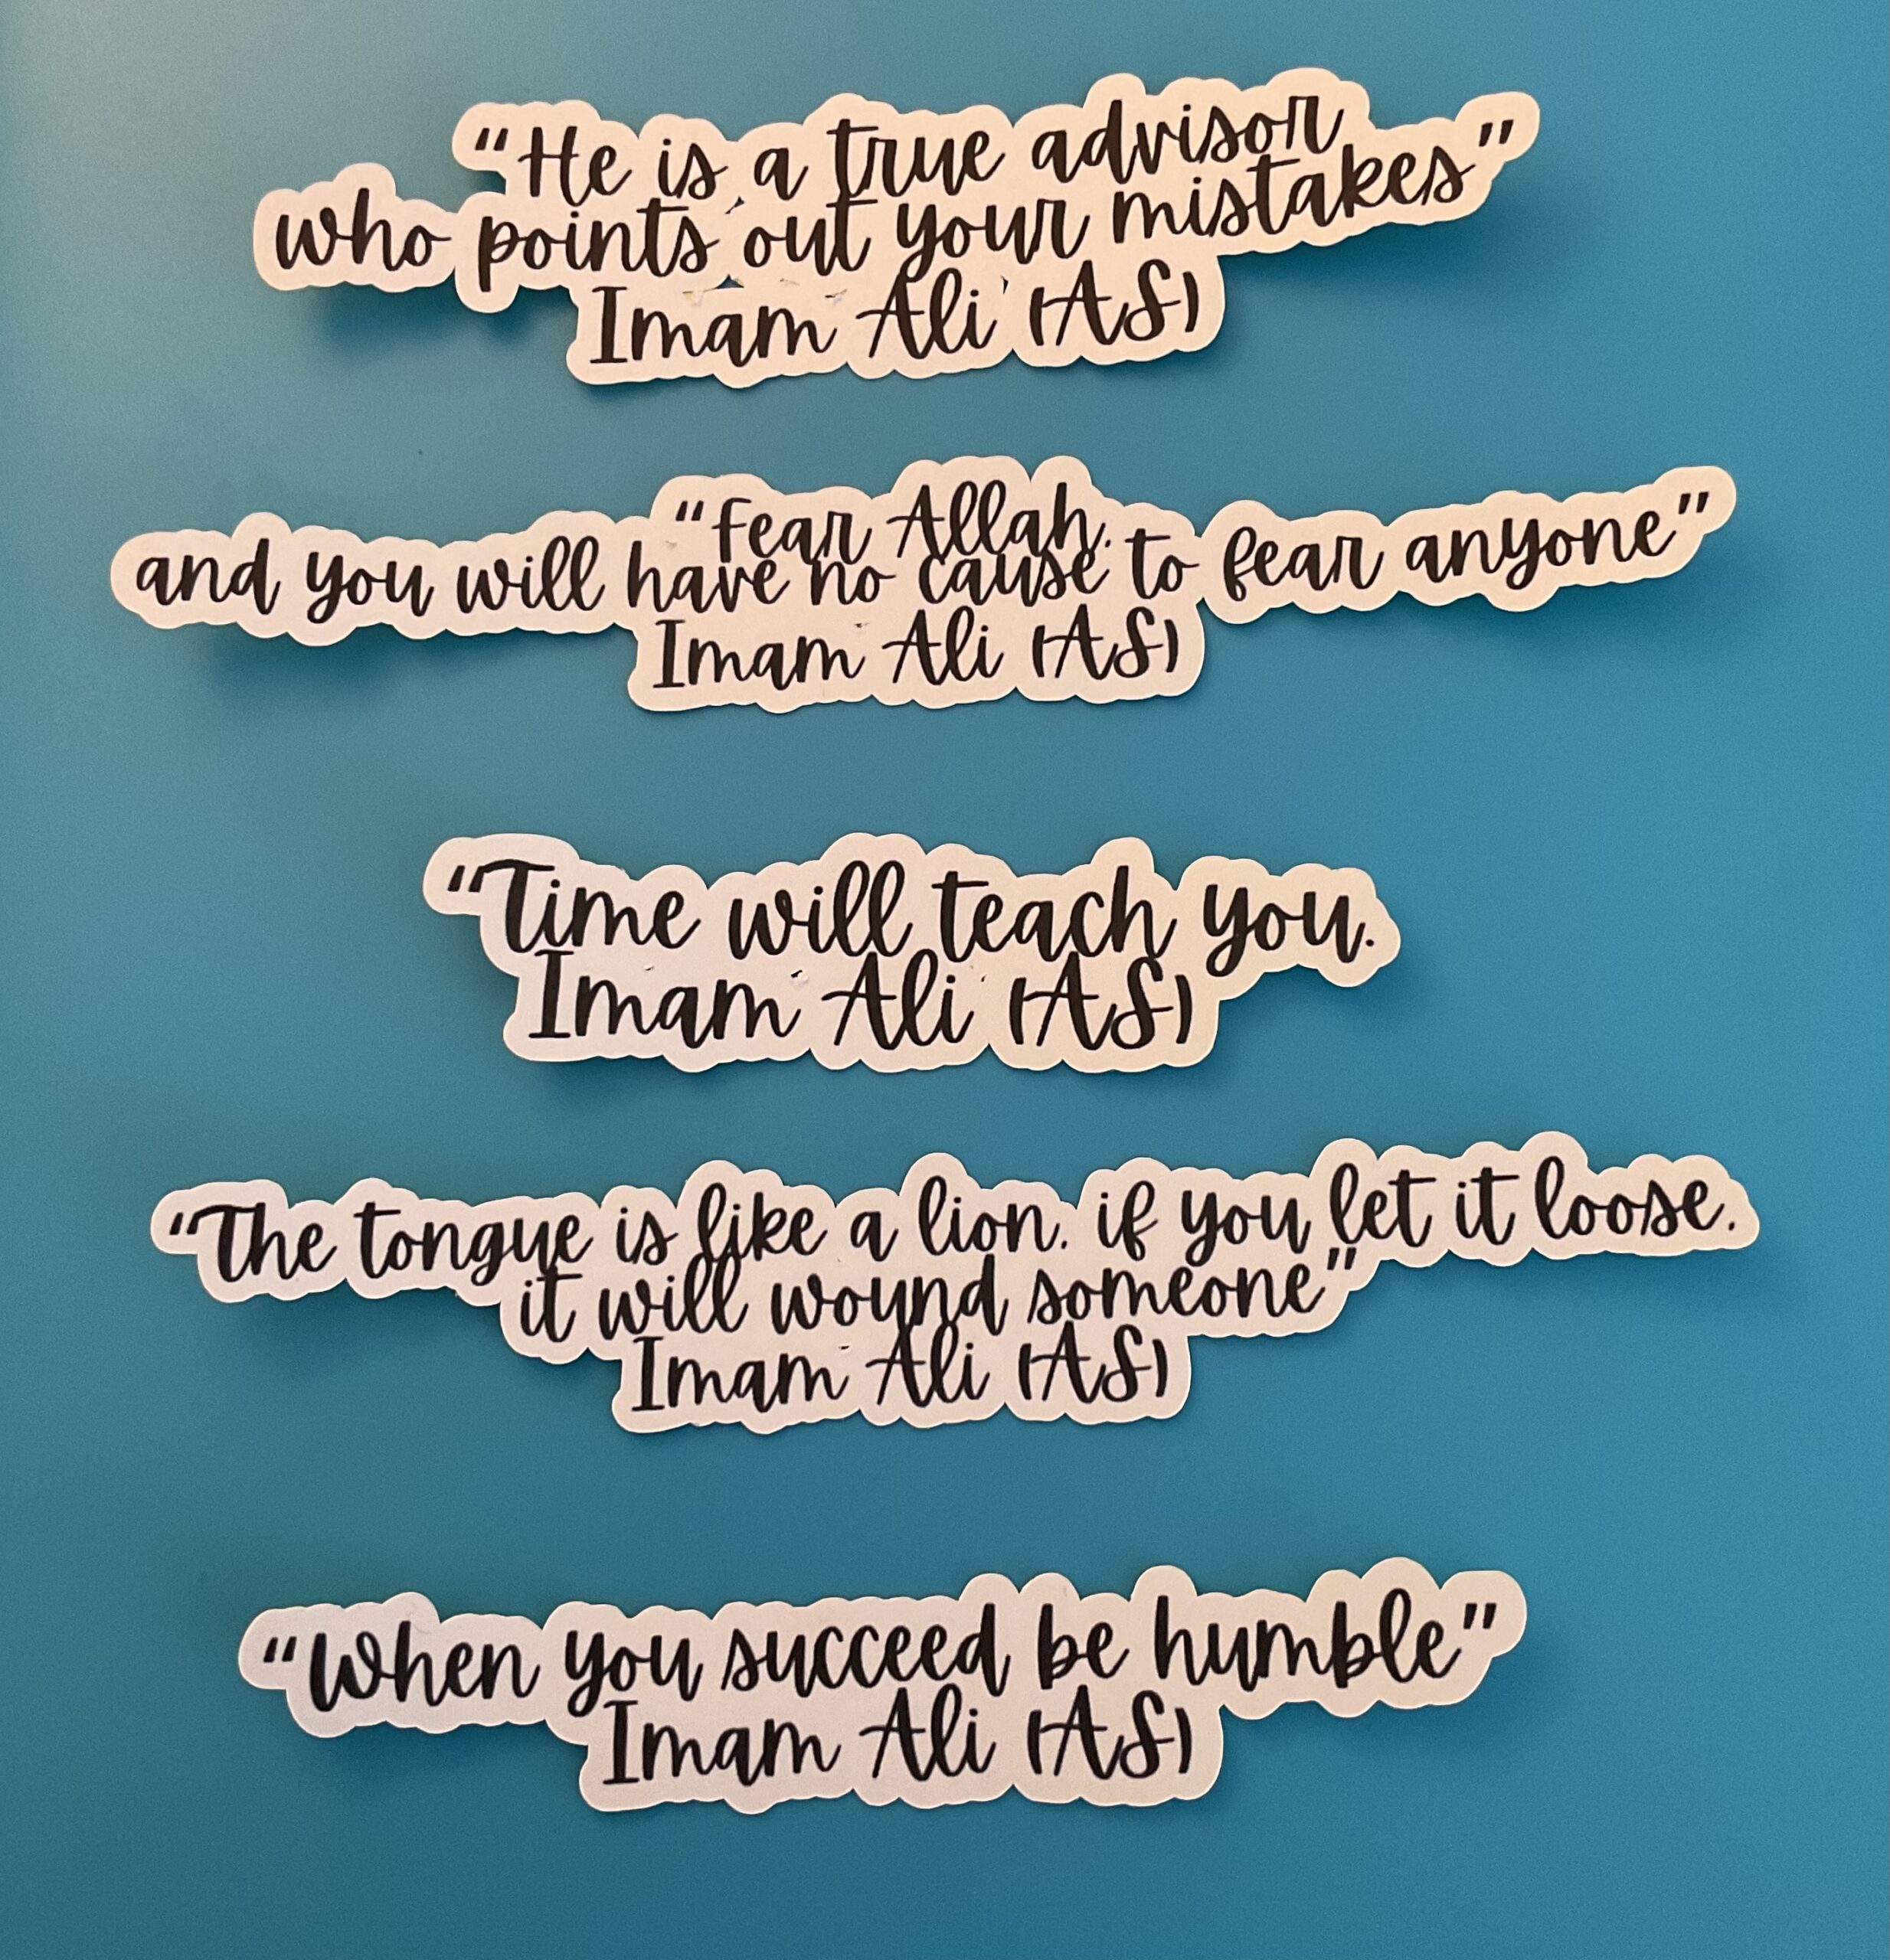 “He is a true advisor
who points out your mistakes”
Imam Ali (AS)
“Fear Allah.
and you will have no cause to fear anyone”
Imam Ali (AS)
“Time will teach you.
Imam Ali (AS)
“The tongue is like a lion. if you let it loose.
it will wound someone”
Imam Ali (AS)
“When you succeed be humble”
Imam Ali (AS)